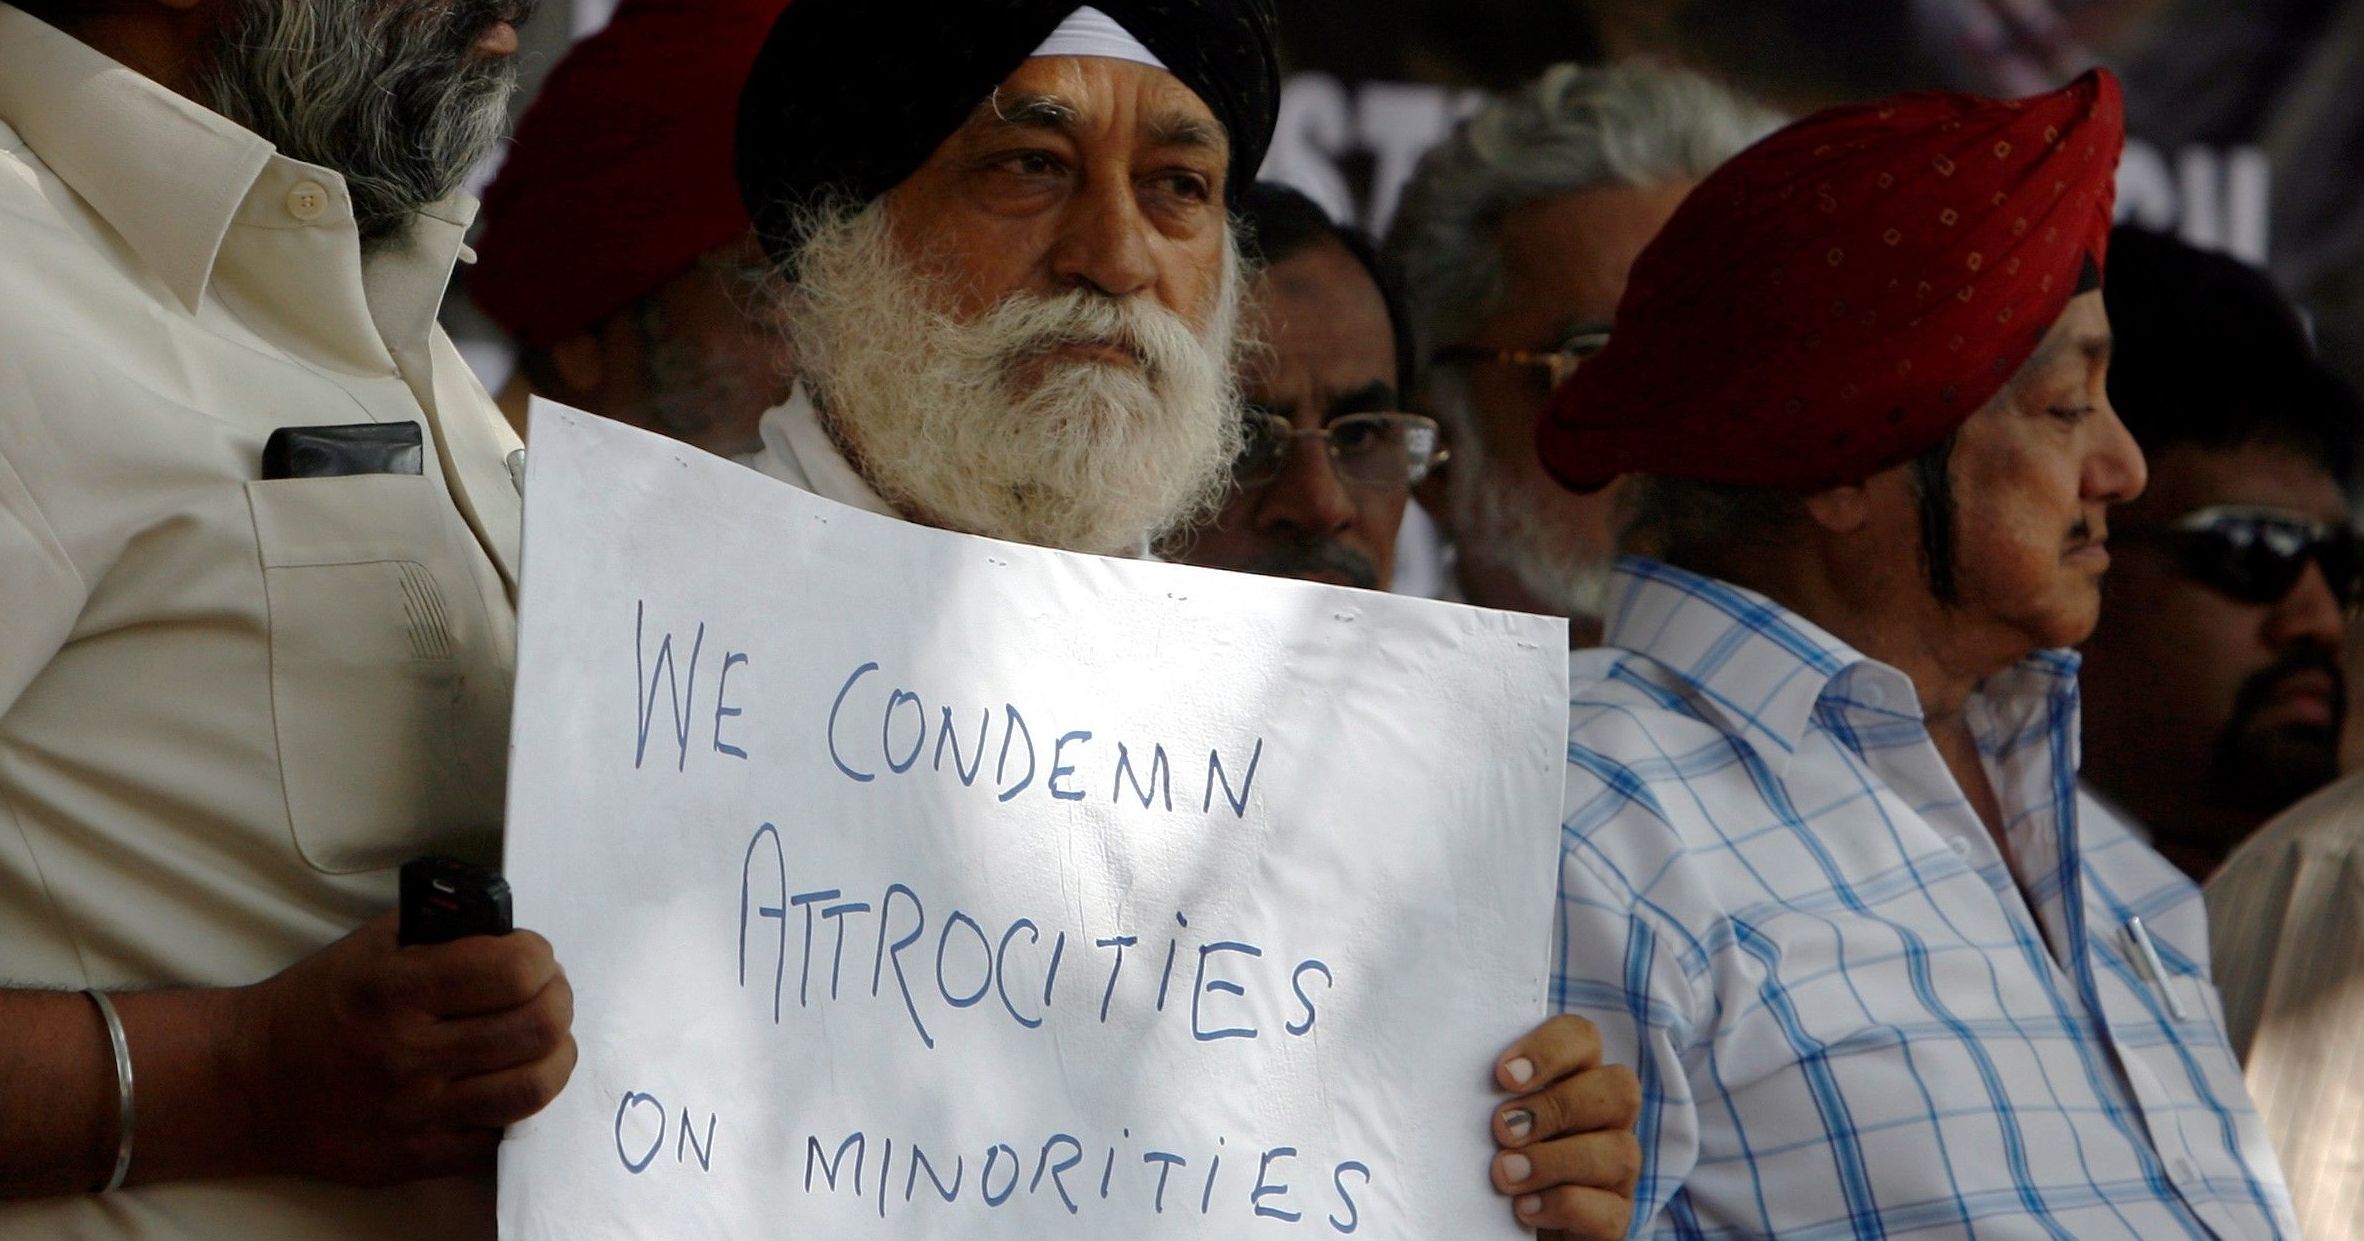 WE CONDEMN
ATTROCITIES
ON MINORITIES